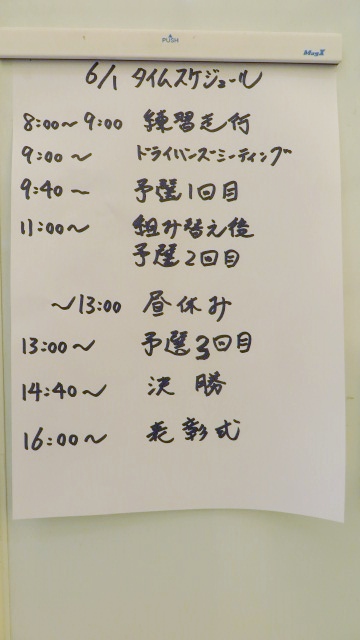 PUSH
MagX
6/1 タイムスケジュール
8:00～9:00 練習走行
9:00～ ドライバーズミーティング
9:40～ 予選1回目
11:00～ 組み替え後
予選2回目
～13:00 昼休み
13:00～ 予選3回目
14:40～ 決勝
16:00～ 表彰式